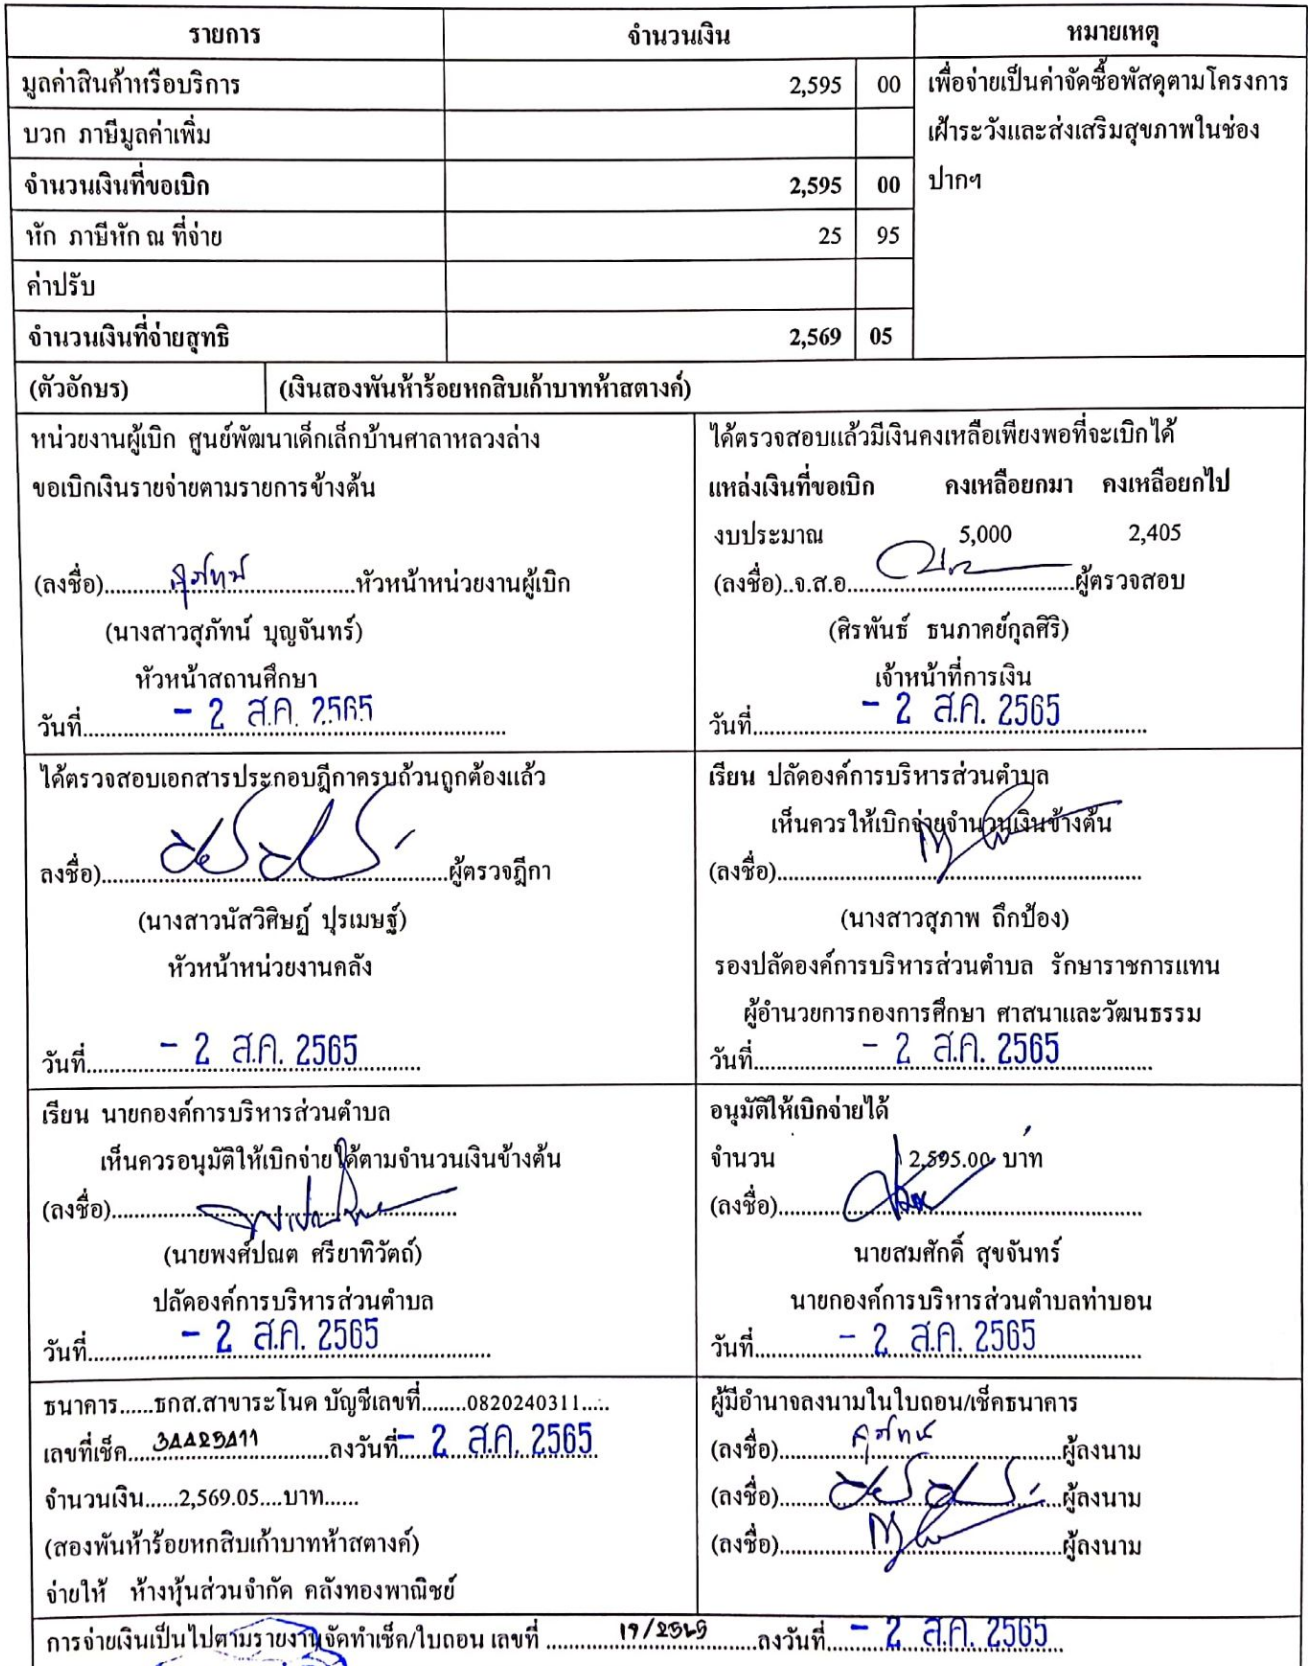 รายการ จำนวนเงิน หมายเหตุ
มูลค่าสินค้าหรือบริการ 2,595 00 เพื่อจ่ายเป็นค่าจัดซื้อพัสดุตามโครงการ
บวก ภาษีมูลค่าเพิ่ม เฝ้าระวังและส่งเสริมสุขภาพในช่อง
จำนวนเงินที่ขอเบิก 2,595 00 ปากฯ
หัก ภาษีหัก ณ ที่จ่าย 25 95
ค่าปรับ
จำนวนเงินที่จ่ายสุทธิ 2,569 05
(ตัวอักษร) (เงินสองพันห้าร้อยหกสิบเก้าบาทห้าสตางค์)
หน่วยงานผู้เบิก ศูนย์พัฒนาเด็กเล็กบ้านศาลาหลวงล่าง
ขอเบิกเงินรายจ่ายตามรายการข้างต้น
(ลงชื่อ)....สุภัทน์....หัวหน้าหน่วยงานผู้เบิก
(นางสาวสุภัทน์ บุญจันทร์)
หัวหน้าสถานศึกษา
วันที่.... - 2 ส.ค. 2565
ได้ตรวจสอบแล้วมีเงินคงเหลือเพียงพอที่จะเบิกได้
แหล่งเงินที่ขอเบิก คงเหลือยกมา คงเหลือยกไป
งบประมาณ 5,000 2,405
(ลงชื่อ)..จ.ส.อ.....ผู้ตรวจสอบ
(ศิรพันธ์ ธนภาคย์กุลศิริ)
เจ้าหน้าที่การเงิน
วันที่.... - 2 ส.ค. 2565
ได้ตรวจสอบเอกสารประกอบฎีกาครบถ้วนถูกต้องแล้ว
ลงชื่อ)....ผู้ตรวจฎีกา
(นางสาวนัสวิศิษฏ์ ปุรเมษฐ์)
หัวหน้าหน่วยงานคลัง
วันที่.... - 2 ส.ค. 2565
เรียน ปลัดองค์การบริหารส่วนตำบล
เห็นควรให้เบิกจ่ายจำนวนเงินข้างต้น
(ลงชื่อ)....
(นางสาวสุภาพ ถึกป้อง)
รองปลัดองค์การบริหารส่วนตำบล รักษาราชการแทน
ผู้อำนวยการกองการศึกษา ศาสนาและวัฒนธรรม
วันที่.... - 2 ส.ค. 2565
เรียน นายกองค์การบริหารส่วนตำบล
เห็นควรอนุมัติให้เบิกจ่ายได้ตามจำนวนเงินข้างต้น
(ลงชื่อ)....
(นายพงศ์ปณต ศรียาทิวัตถ์)
ปลัดองค์การบริหารส่วนตำบล
วันที่.... - 2 ส.ค. 2565
อนุมัติให้เบิกจ่ายได้
จำนวน 2,595.00 บาท
(ลงชื่อ)....
นายสมศักดิ์ สุขจันทร์
นายกองค์การบริหารส่วนตำบลท่าบอน
วันที่.... - 2 ส.ค. 2565
ธนาคาร......ธกส.สาขาระโนด บัญชีเลขที่........0820240311.....
เลขที่เช็ค.... ....ลงวันที่ - 2 ส.ค. 2565
จำนวนเงิน......2,569.05....บาท......
(สองพันห้าร้อยหกสิบเก้าบาทห้าสตางค์)
จ่ายให้ ห้างหุ้นส่วนจำกัด คลังทองพาณิชย์
ผู้มีอำนาจลงนามในใบถอน/เช็คธนาคาร
(ลงชื่อ)....สุภัทน์....ผู้ลงนาม
(ลงชื่อ)....ผู้ลงนาม
(ลงชื่อ)....ผู้ลงนาม
การจ่ายเงินเป็นไปตามรายงานจัดทำเช็ค/ใบถอน เลขที่ .... ....ลงวันที่.... - 2 ส.ค. 2565